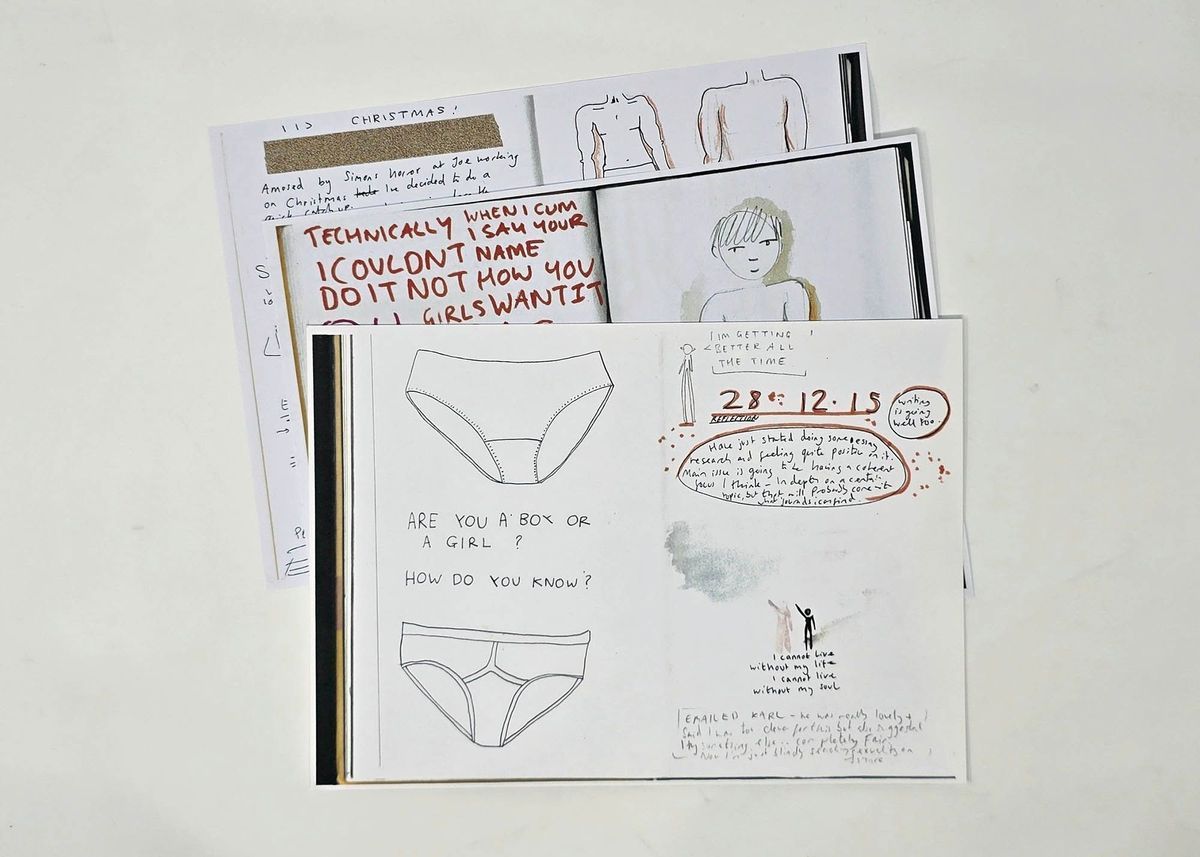 CHRISTMAS!
Amused by Simons horror at Joe working
on Christmas I've decided to do a
quick catch up
TECHNICALLY WHEN I CUM
I SAY YOUR
I COULDNT NAME
DO IT NOT HOW YOU
GIRLS WANT IT
ARE YOU A BOY OR
A GIRL ?
HOW DO YOU KNOW?
I'M GETTING
BETTER ALL
THE TIME
28 · 12 · 15
REFLECTION
writing
is going
well too.
Have just started doing some essay
research and feeling quite positive on it.
Main issue is going to be having a coherent
focus I think - In depth on a certain
topic, but that will probably come with
what journals i can find.
I cannot live
without my life
I cannot live
without my soul
EMAILED KARL - he was really lovely +
said I was too clever for this but also suggested
I try something else... completely fair
Now I'm just